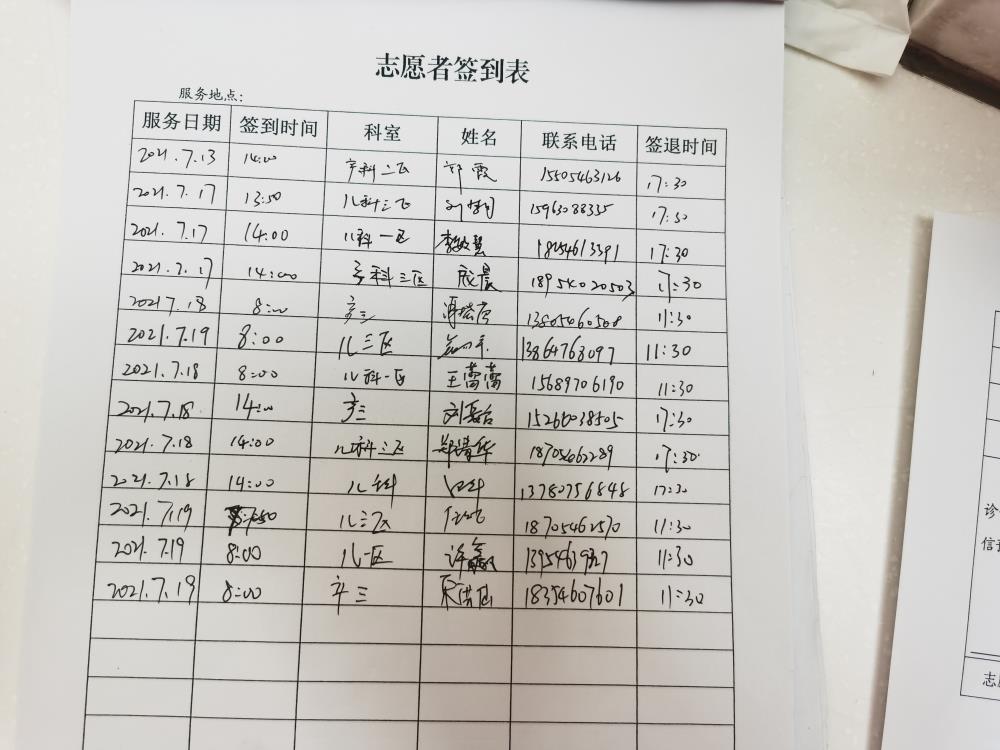 志愿者签到表
服务地点:
服务日期 签到时间 科室 姓名 联系电话 签退时间
2021.7.13 14:00 产科二区 郑霞 15505463126 17:30
2021.7.17 13:50 儿科三区 15963088335 17:30
2021.7.17 14:00 儿科一区 18254613391 17:30
2021.7.17 14:00 产科三区 晨 18954020503 17:30
2021 7.18 8:00 产三 13805460508 11:30
2021.7.19 8:00 儿三区 13864768097 11:30
2021.7.18 8:00 儿科一区 王蕾蕾 15689706190 11:30
2021.7.18 14:00 产三 刘 15266038505 17:30
2021.7.18 14:00 儿科三区 郑清华 18705462289 17:30
2021.7.18 14:00 儿科 13780756848 17:30
2021.7.19 儿三区 18705462570 11:30
2021.7.19 8:00 儿一区 许鑫 11:30
2021.7.19 8:00 产三 18354607601 11:30
诊
信
志